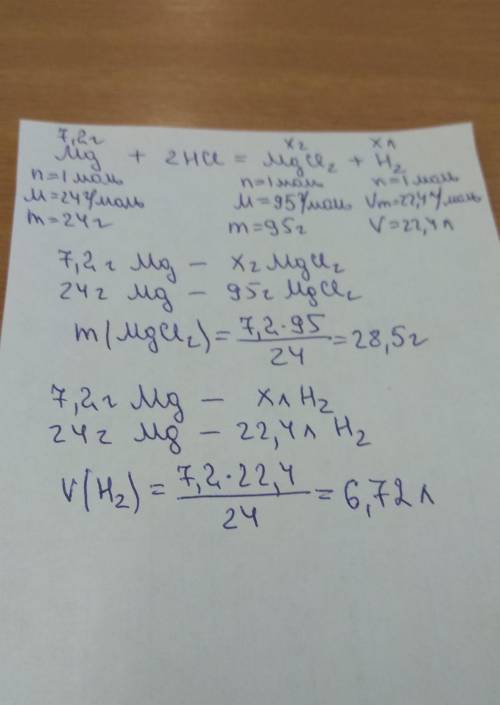 7,2г xг xл
Mg + 2HCl = MgCl₂ + H₂
n=1моль n=1моль n=1моль
M=24г/моль M=95г/моль Vm=22,4л/моль
m=24г m=95г V=22,4л
7,2г Mg – xг MgCl₂
24г Mg – 95г MgCl₂
m(MgCl₂)=7,2·95/24=28,5г
7,2г Mg – xл H₂
24г Mg – 22,4л H₂
V(H₂)=7,2·22,4/24=6,72л